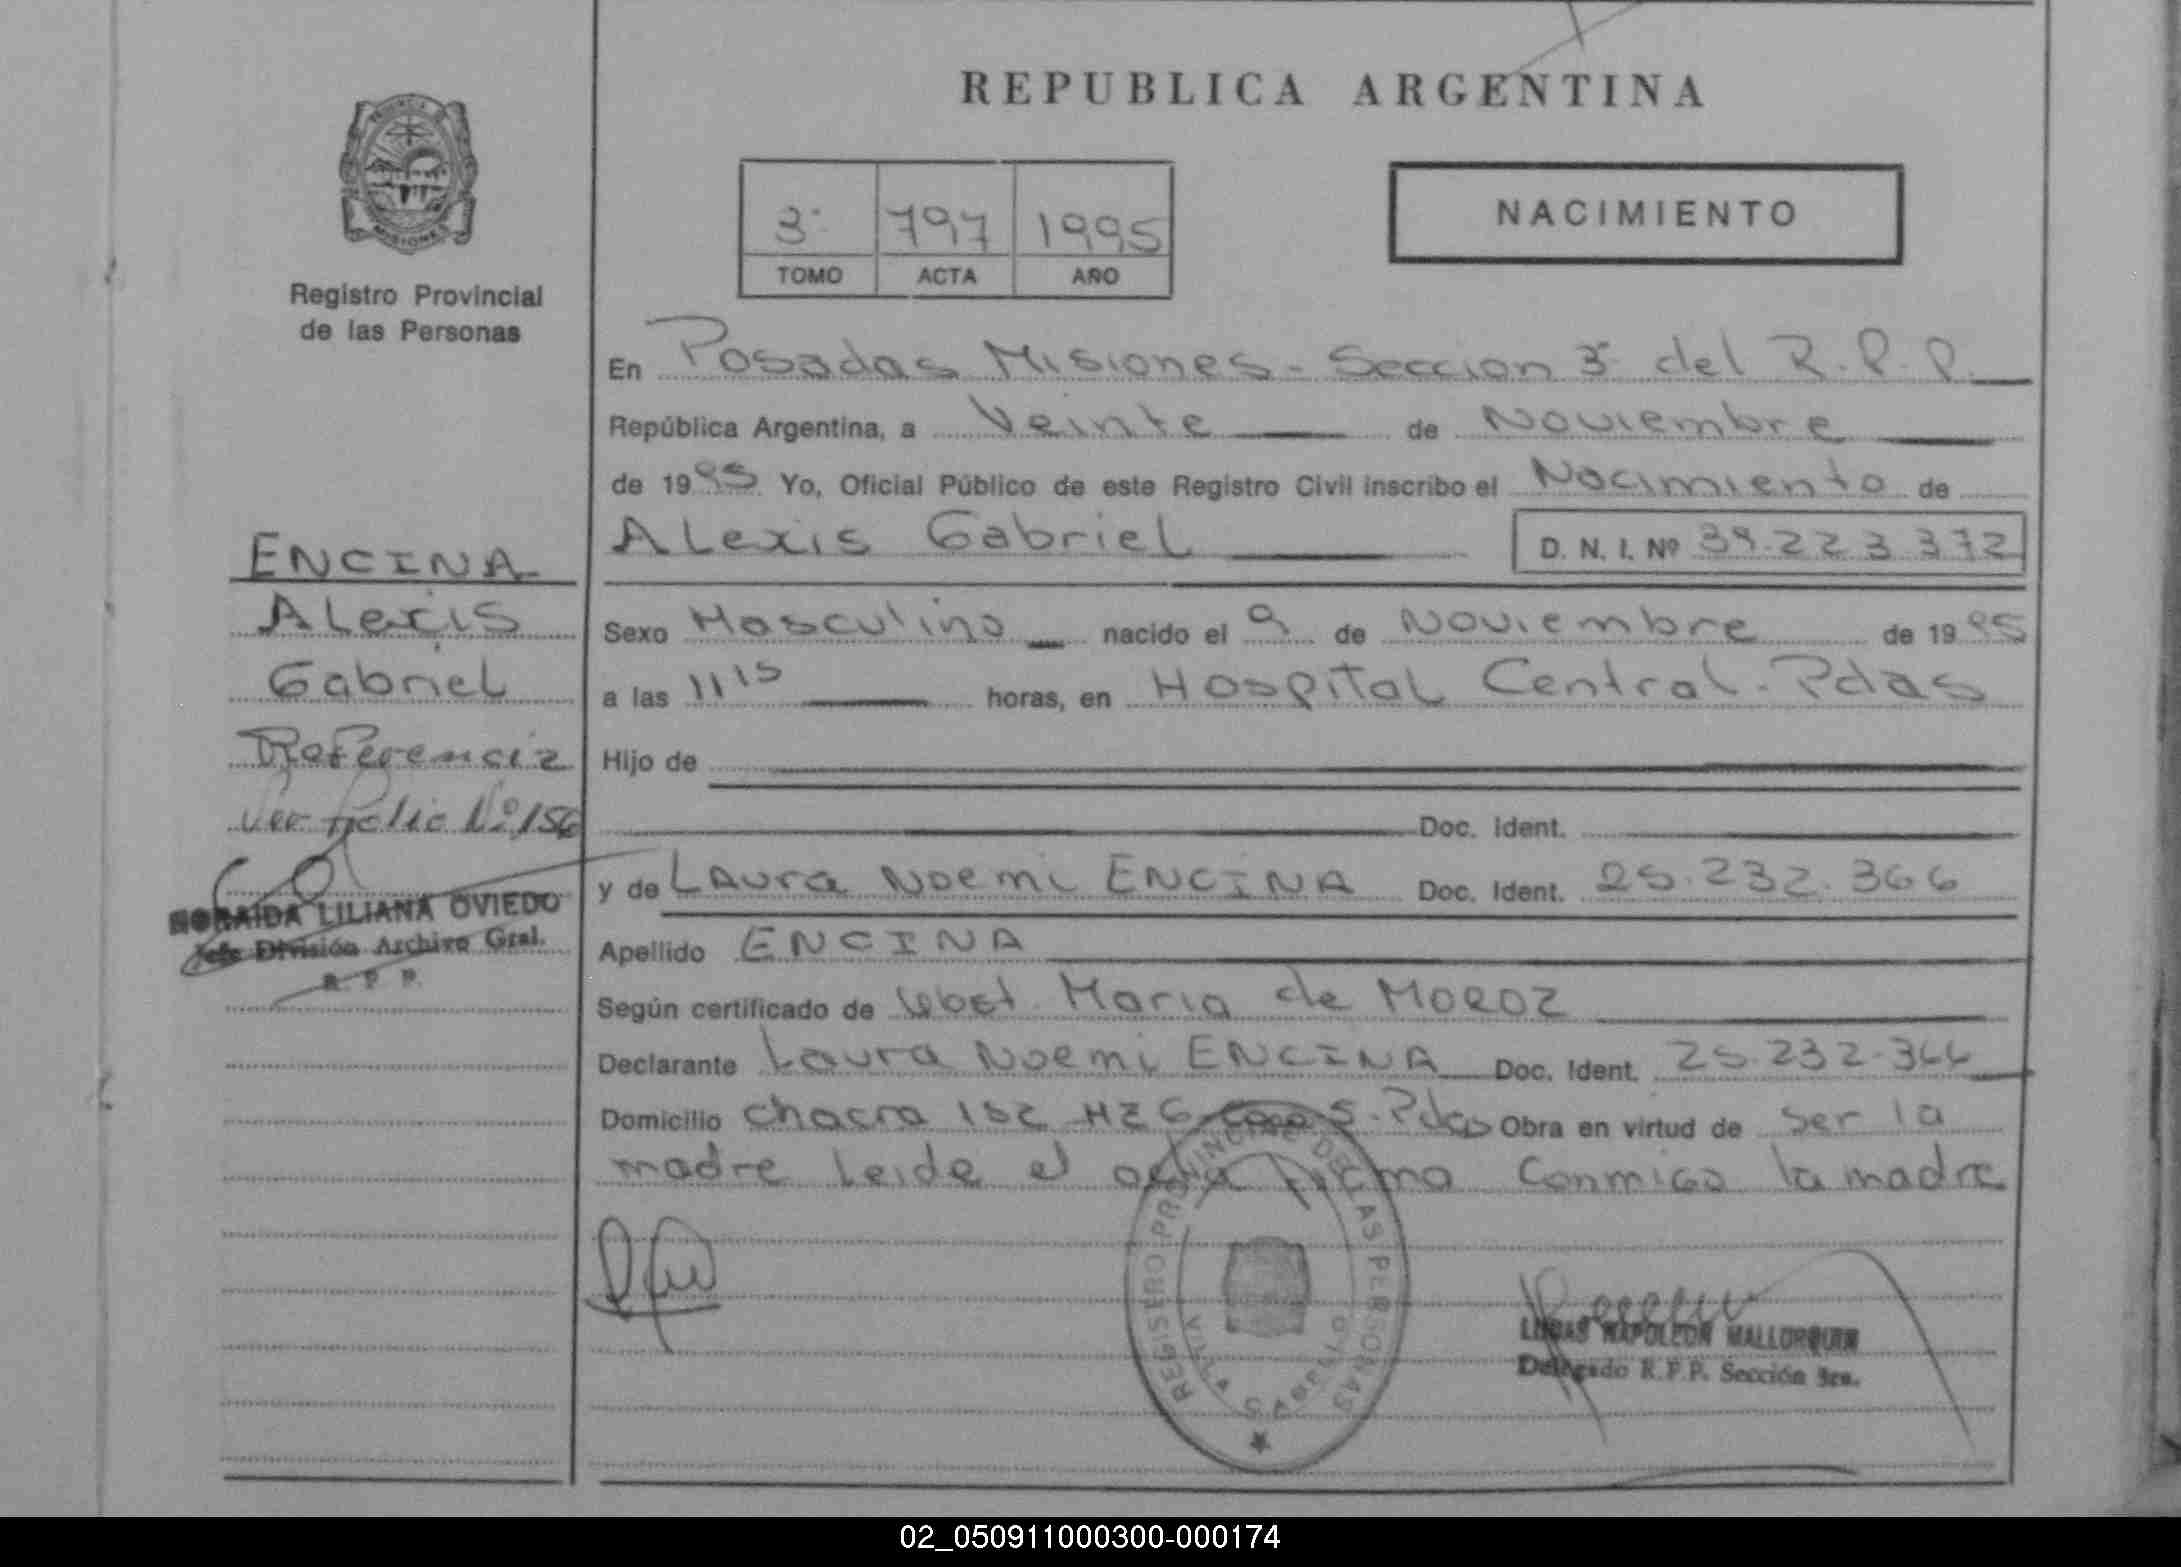 REPUBLICA ARGENTINA
PROVINCIA
MISIONES
Registro Provincial
de las Personas
3ª 797 1995
TOMO ACTA AÑO
NACIMIENTO
En Posadas Misiones - Seccion 3ª del R.P.P.
República Argentina, a Veinte de Noviembre
de 1995 Yo, Oficial Público de este Registro Civil inscribo el Nacimiento de
Alexis Gabriel D. N. I. Nº 39.223.372
Sexo Masculino nacido el 9 de Noviembre de 1995
a las 11 15 horas, en Hospital Central - Pdas
Hijo de
Doc. Ident.
y de Laura Noemi ENCINA Doc. Ident. 25.232.366
Apellido ENCINA
Según certificado de Obst. Maria de MOROZ
Declarante Laura Noemi ENCINA Doc. Ident. 25.232.366
Domicilio chacra 152 MZ 6 casa 5 - Pdas Obra en virtud de ser la
madre leida el acta firma conmigo la madre
ENCINA
Alexis
Gabriel
Referencia
Ver folio Nº 156
LILIANA OVIEDO
Jefe División Archivo Gral.
R. P. P.
REGISTRO PROVINCIAL DE LAS PERSONAS
POSADAS
LUCAS NAPOLEON MALLORQUIN
Delegado R.P.P. Sección 3ra.
02_050911000300-000174